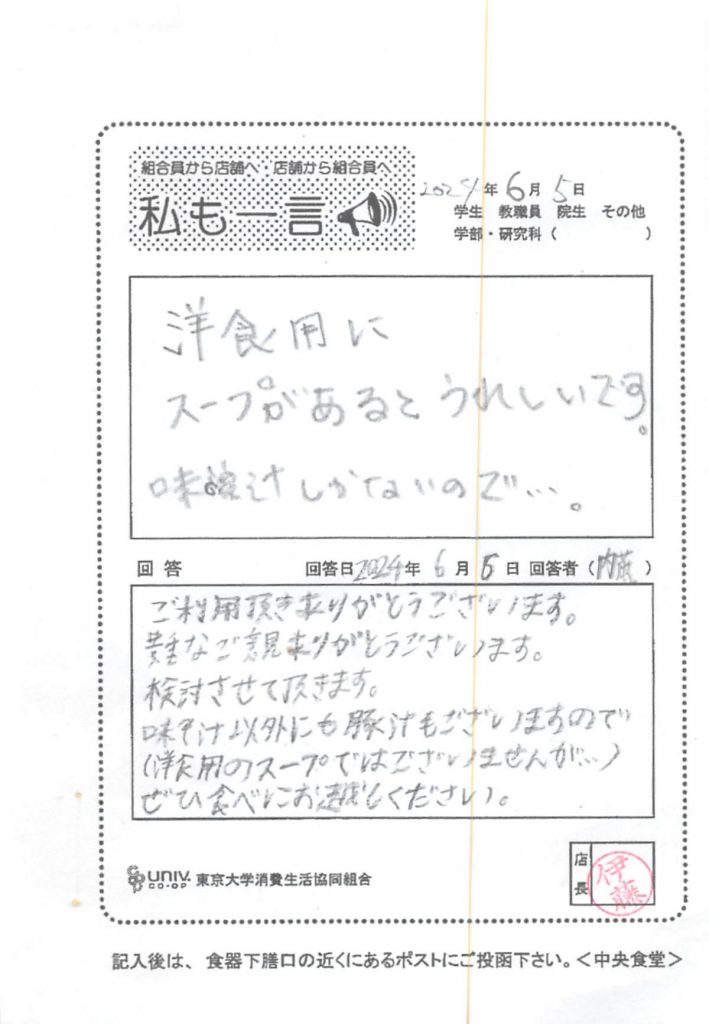 組合員から店舗へ・店舗から組合員へ
私も一言
2024年6月5日
学生 教職員 院生 その他
学部・研究科( )
洋食用に
スープがあるとうれしいです。
味噌汁しかないので…。
回答 回答日2024年6月5日 回答者(内藤)
ご利用頂きありがとうございます。
貴重なご意見ありがとうございます。
検討させて頂きます。
味そ汁以外にも豚汁もございますので
(洋食用のスープではございませんが…)
ぜひ食べにお越しください。
UNIV. CO-OP 東京大学消費生活協同組合
店長 伊藤
記入後は、食器下膳口の近くにあるポストにご投函下さい。<中央食堂>